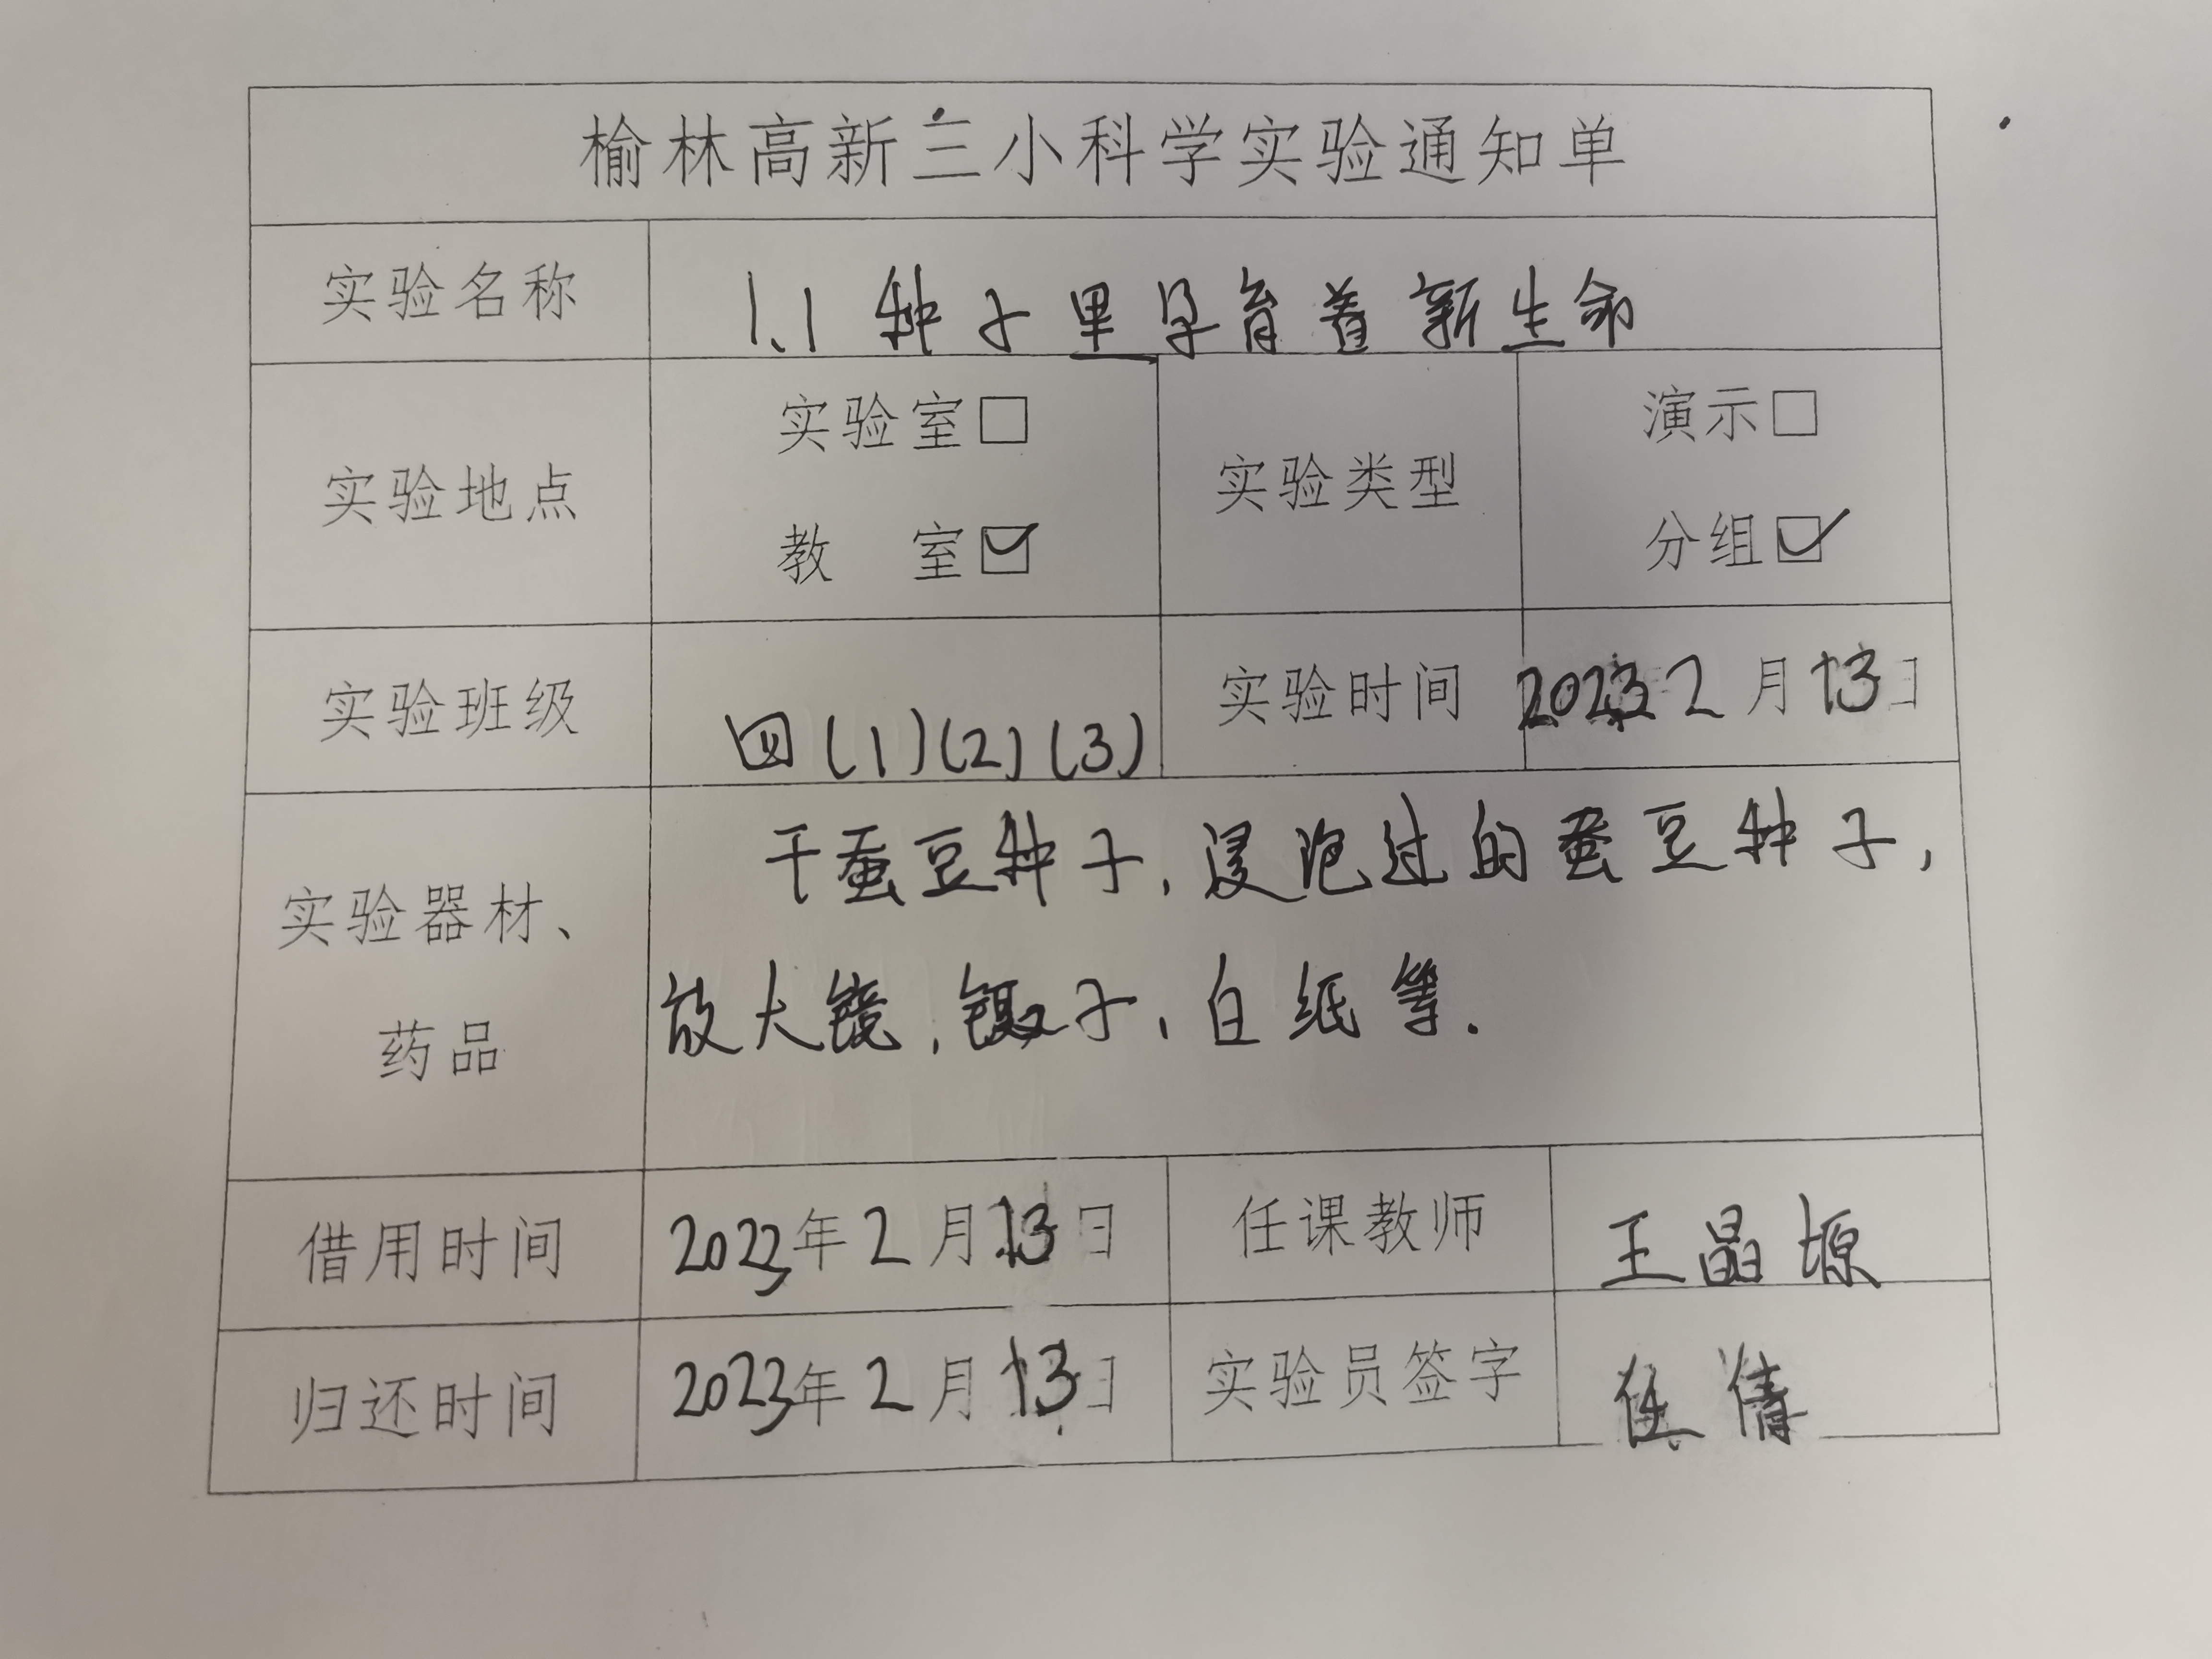 榆林高新三小科学实验通知单
实验名称 1.1 种子里孕育着新生命
实验地点 实验室□ 实验类型 演示□
教 室☑ 分组☑
实验班级 四(1)(2)(3) 实验时间 2023 2月13日
实验器材、药品 干蚕豆种子,浸泡过的蚕豆种子,
放大镜,镊子,白纸等.
借用时间 2023年2月13日 任课教师 王晶塬
归还时间 2023年2月13日 实验员签字 任倩